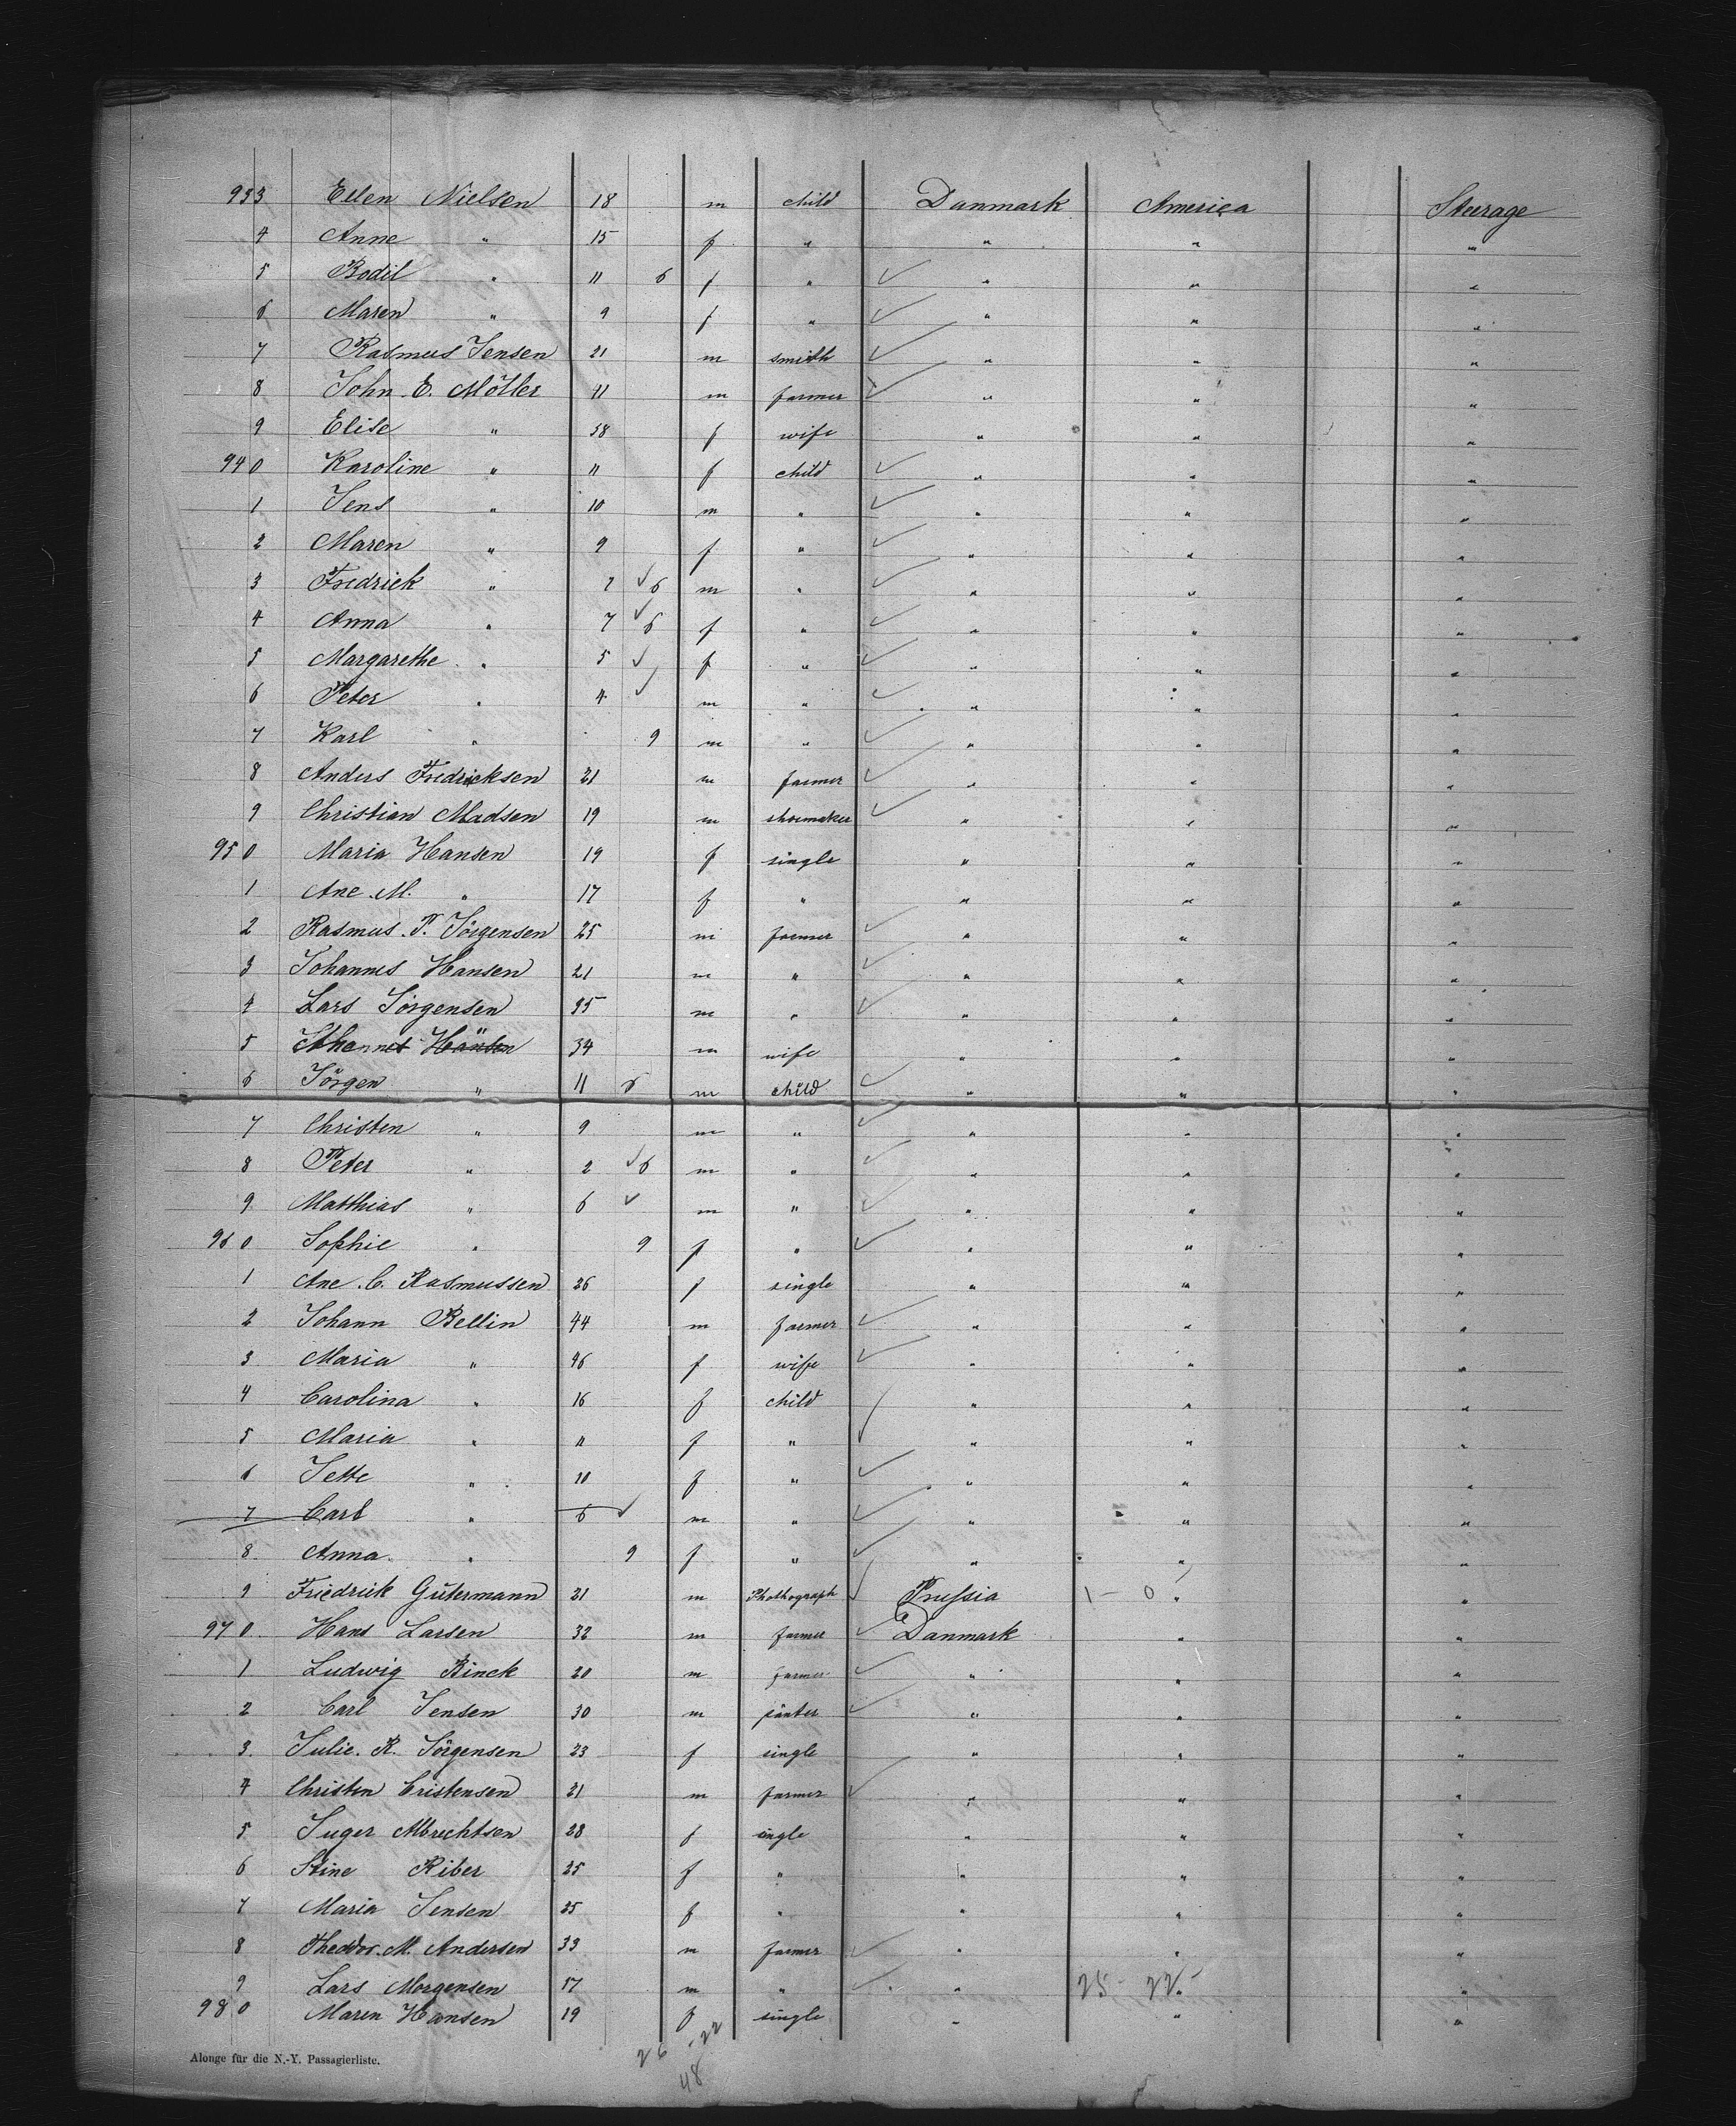 933 Ellen Nielsen 18 m child Danmark America Steerage
4 Anne " 15 f " " " "
5 Bodil " 11 6 f " " " "
6 Maren " 9 f " " " "
7 Rasmus Jensen 21 m smith " " "
8 John E. Möller 41 m farmer " " "
9 Elise " 38 f wife " " "
940 Karoline " 11 f child " " "
1 Jens " 10 m " " " "
2 Maren " 9 f " " " "
3 Fredrick " 6 m " " " "
4 Anna " 7 6 f " " " "
5 Margarethe " 5 f " " " "
6 Peter " 4 m " " " "
7 Karl " 9 m " " " "
8 Anders Fredricksen 21 m farmer " " "
9 Christian Madsen 19 m shoemaker " " "
950 Maria Hansen 19 f single " " "
1 Ane M. " 17 f " " " "
2 Rasmus P. Jörgensen 25 m farmer " " "
3 Johannes Hansen 21 m " " " "
4 Lars Jörgensen 35 m " " " "
5 Johannes Hansen 34 m wife " " "
6 Jörgen " 11 6 m child " " "
7 Christen " 9 m " " " "
8 Peter " 2 6 m " " " "
9 Matthias " 6 m " " " "
960 Sophie " 9 f " " " "
1 Ane C. Rasmussen 26 f single " " "
2 Johann Bellin 44 m farmer " " "
3 Maria " 46 f wife " " "
4 Carolina " 16 f child " " "
5 Maria " 11 f " " " "
6 Jette " 10 f " " " "
7 Carl " 6 m " " " "
8 Anna " 9 f " " " "
9 Friedrick Gütermann 21 m Phothograph Prussia 1 - 0 " "
970 Hans Larsen 32 m farmer Danmark " "
1 Ludwig Binck 20 m farmer " " "
2 Carl Jensen 30 m painter " " "
3 Julie R. Jörgensen 23 f single " " "
4 Christen Cristensen 21 m farmer " " "
5 Inger Albrechtsen 28 f single " " "
6 Stine Riber 25 f " " " "
7 Maria Jensen 25 f " " " "
8 Theodor M. Andersen 33 m farmer " " "
9 Lars Morgensen 57 m " " 25 - 22 " "
980 Maren Hansen 19 f single " " "
26 - 22
48
Alonge für die N.-Y. Passagierliste.